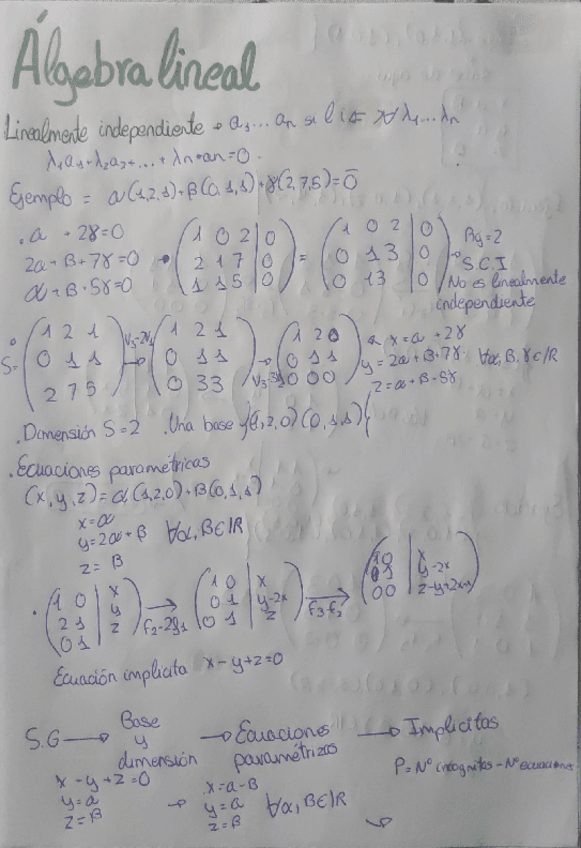 Álgebra lineal
Linealmente independiente → a₁...aₙ si l i ⇐ ∀ λ₁...λₙ
λ₁a₁+λ₂a₂+...+λn·an=0.
Ejemplo = α(1,2,1)+β(0,1,1)+γ(2,7,5)=0̄
.α + 2γ=0
2α+β+7γ=0
α+β+5γ=0
→ (1 0 2 | 0
2 1 7 | 0
1 1 5 | 0)
= (1 0 2 | 0
0 1 3 | 0
0 1 3 | 0)
→ Rg=2
S.C.I
No es linealmente
independiente
S= (1 2 1
0 1 1
2 7 5)
V₃-2V₁
→ (1 2 1
0 1 1
0 3 3)
→ V₃-3V
(1 2 0
0 1 1
0 0 0)
x=α+2γ
y=2α+β+7γ ∀α,β,γ∈ℝ
z=α+β+5γ
.Dimensión S=2 .Una base {(1,2,0)(0,1,1)}
.Ecuaciones paramétricas
(x,y,z)=α(1,2,0)+β(0,1,1)
x=α
y=2α+β ∀α,β∈ℝ
z=β
. (1 0 | x
2 1 | y
0 1 | z)
→ F₂-2F₁
(1 0 | x
0 1 | y-2x
0 1 | z)
→ F₃-F₂
(1 0 | x
0 1 | y-2x
0 0 | z-y+2x)
Ecuación implícita x-y+z=0
S.G → Base
y
dimensión
→ Ecuaciones
paramétricas
→ Implícitas
P=Nº incógnitas-Nº ecuaciones
x-y+z=0
y=α
z=β
→ x=α-β
y=α ∀α,β∈ℝ
z=β
→